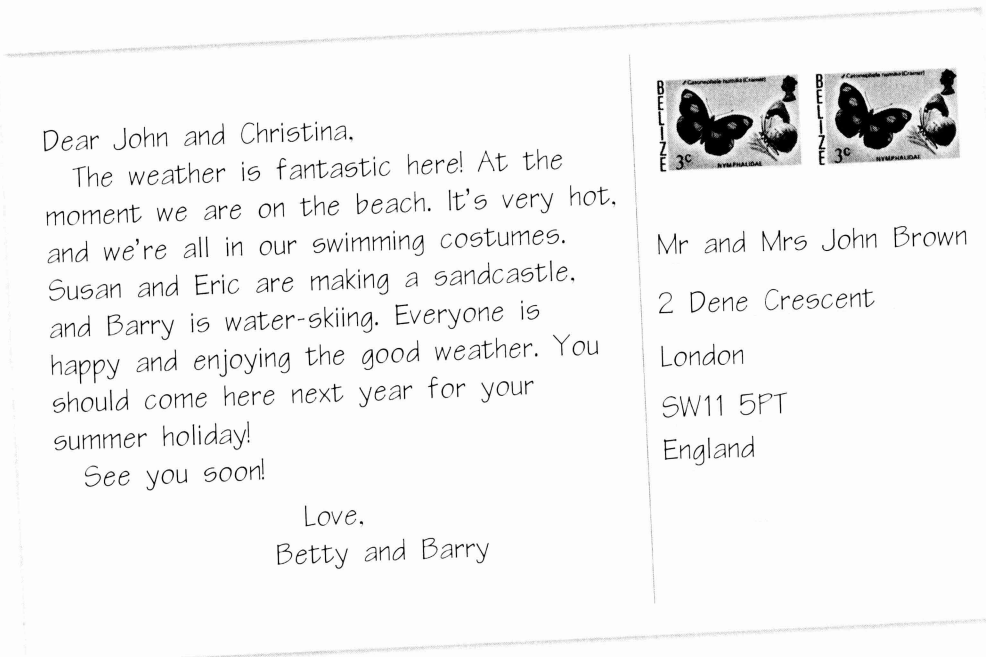 Dear John and Christina,
The weather is fantastic here! At the
moment we are on the beach. It's very hot,
and we're all in our swimming costumes.
Susan and Eric are making a sandcastle,
and Barry is water-skiing. Everyone is
happy and enjoying the good weather. You
should come here next year for your
summer holiday!
See you soon!
Love,
Betty and Barry
BELIZE
3c
NYMPHALIDAE
BELIZE
3c
NYMPHALIDAE
Mr and Mrs John Brown
2 Dene Crescent
London
SW11 5PT
England